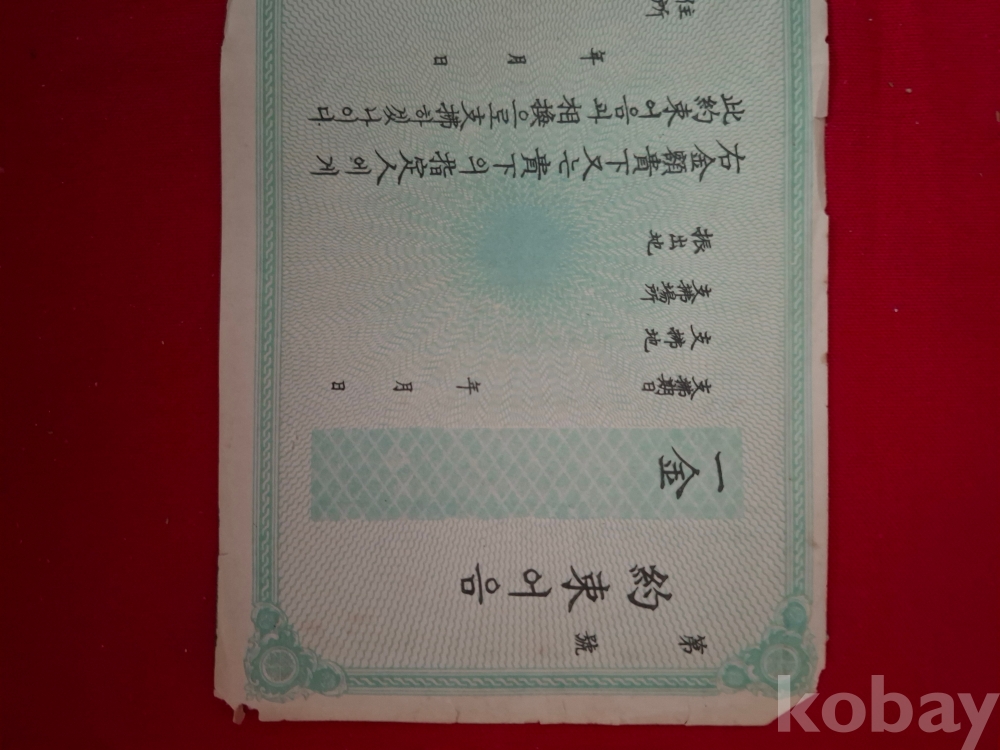 第 號
約束어음
一金
支拂期日 年 月 日
支拂地
支拂場所
振出地
右金額貴下又는貴下의指定人에게
此約束어음과相換으로支拂하겠나이다
年 月 日
住所
kobay